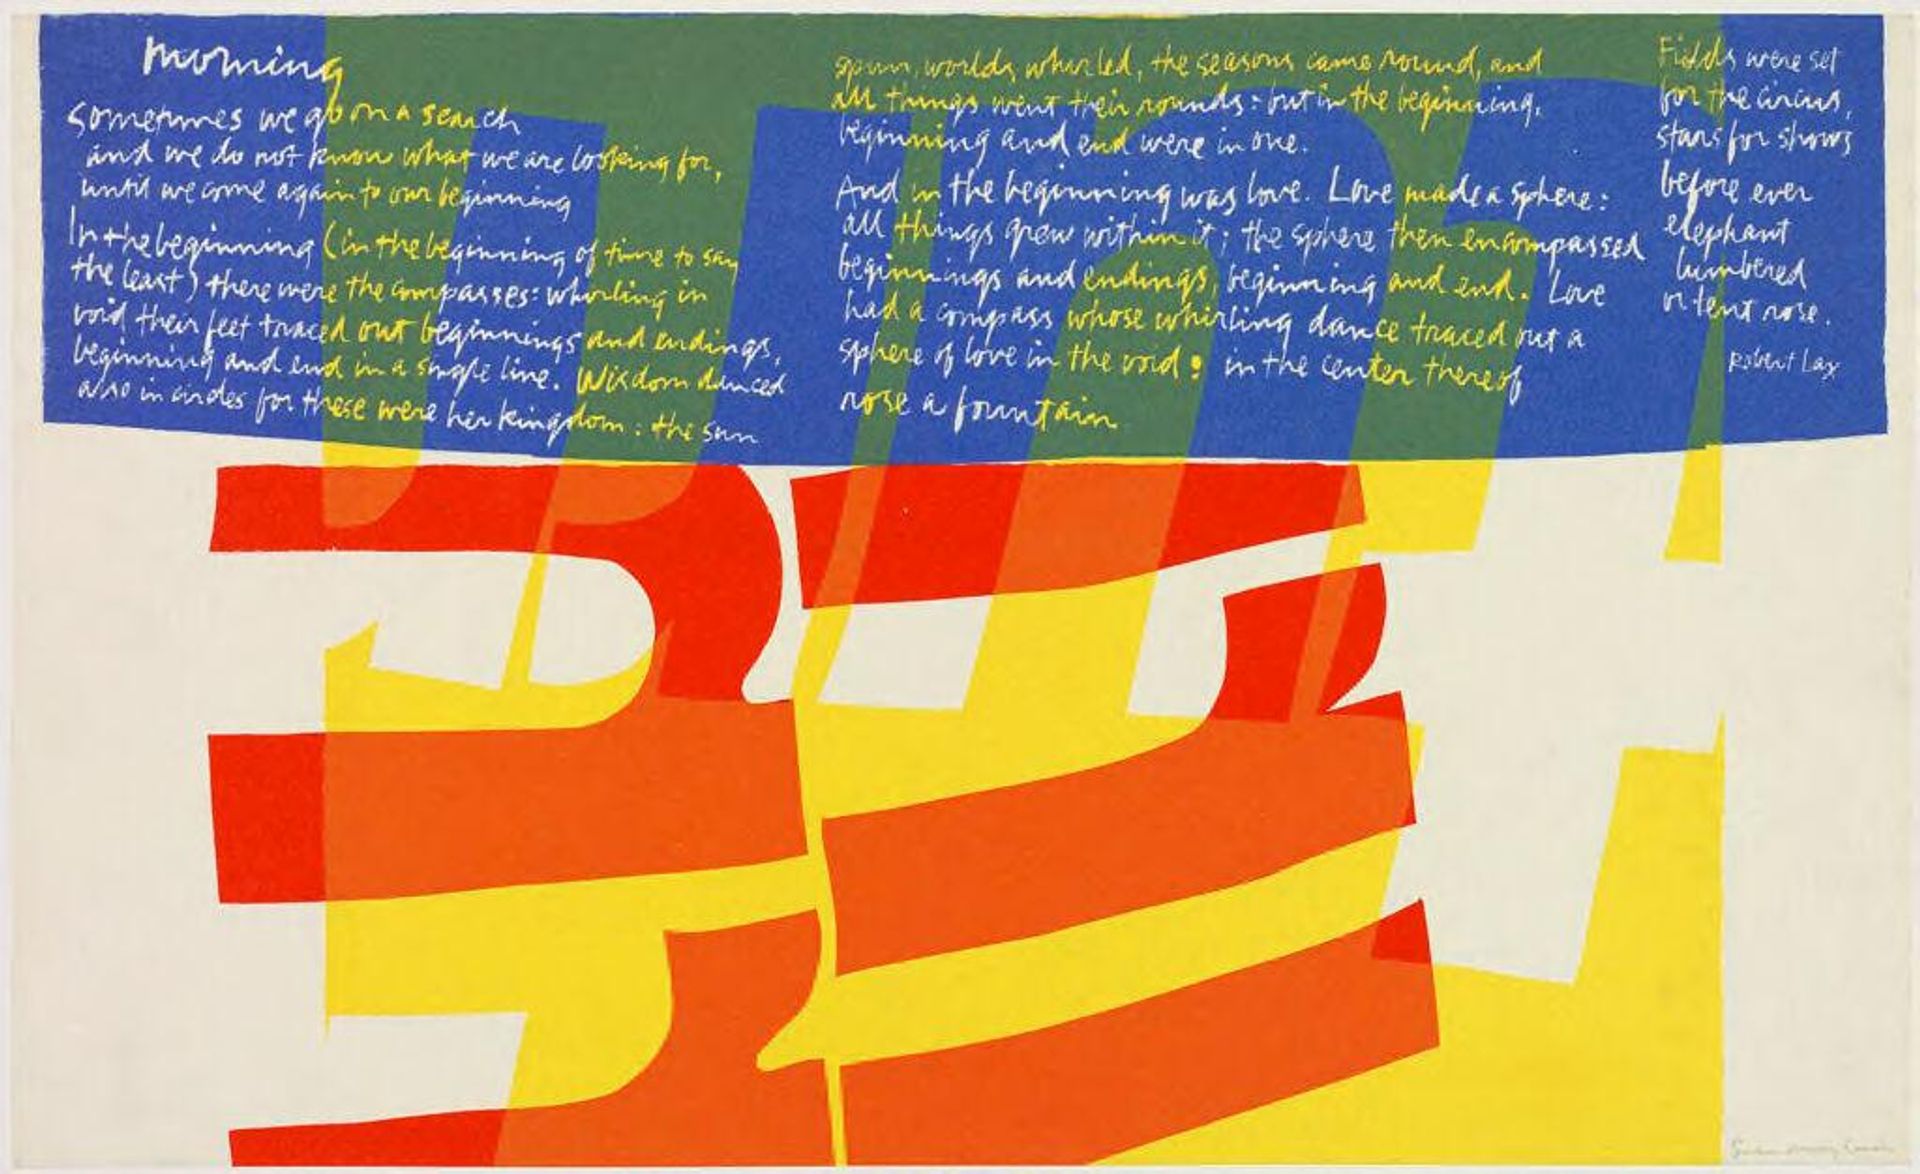 morning
Sometimes we go on a search
and we do not know what we are looking for,
until we come again to our beginning
In the beginning (in the beginning of time to say
the least) there were the compasses: whirling in
void their feet traced out beginnings and endings,
beginning and end in a single line. Wisdom danced
also in circles for these were her kingdom: the sun
spun, worlds whirled, the seasons came round, and
all things went their rounds: but in the beginning,
beginning and end were in one.
And in the beginning was love. Love made a sphere:
all things grew within it; the sphere then encompassed
beginnings and endings, beginning and end. Love
had a compass whose whirling dance traced out a
sphere of love in the void: in the center thereof
rose a fountain
Fields were set
for the circus,
stars for shows
before ever
elephant
lumbered
or tent rose.
Robert Lax